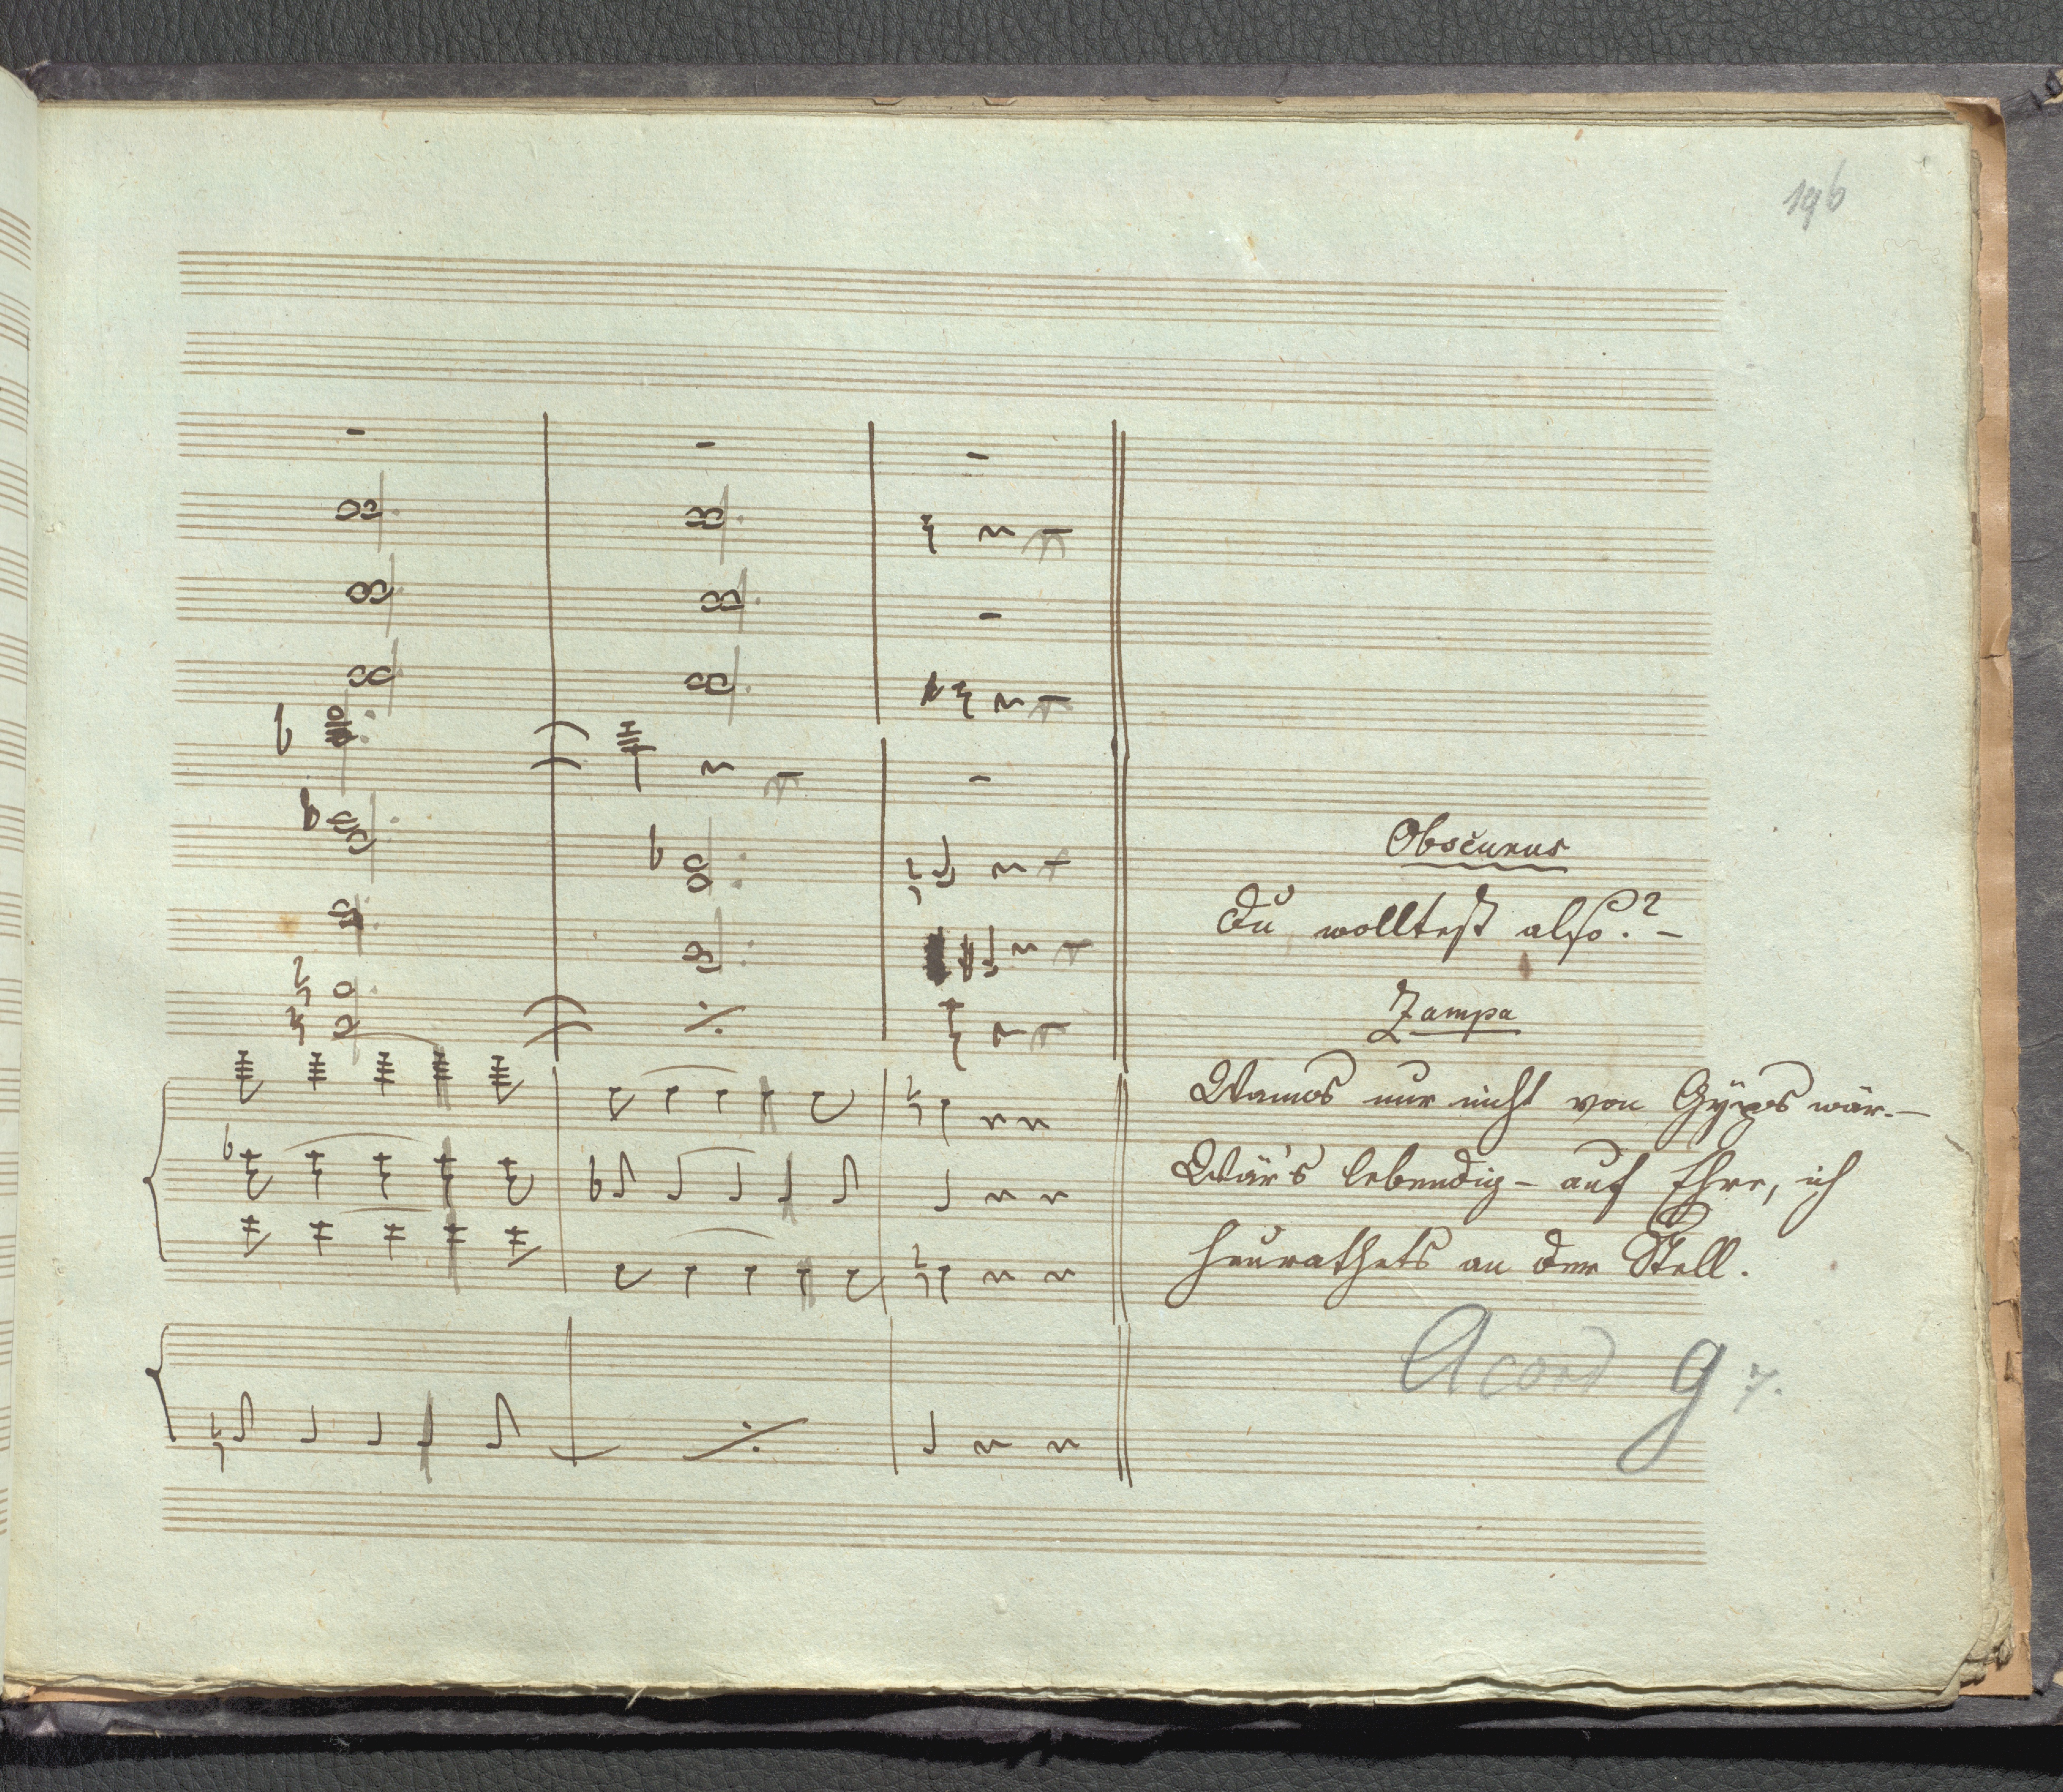 196
Obscurus
Du wolltest also?–
Zampa
Wanns nur nicht von Gÿps wär.–
Wär's lebendig – auf Ehre, ich
heurathets an der Stell.
Acord g